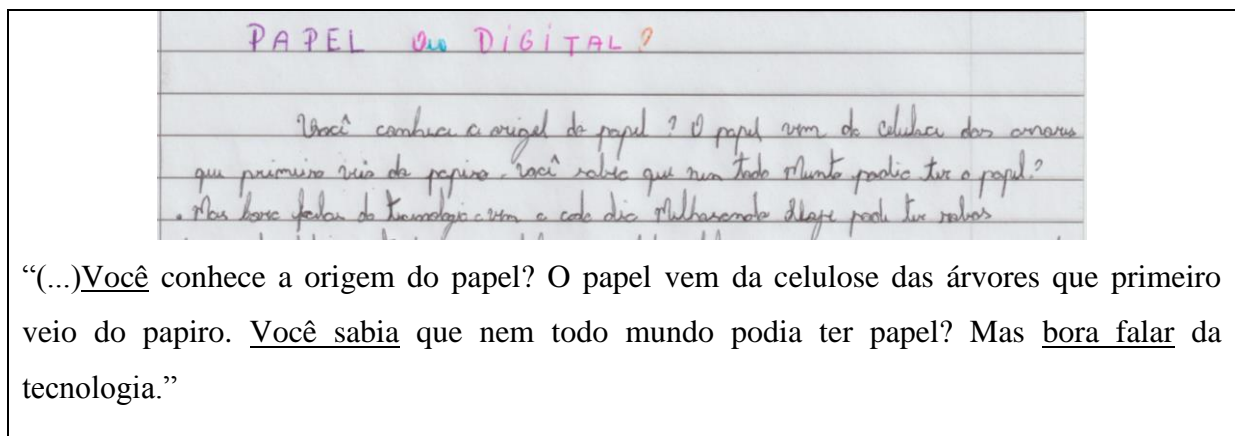 PAPEL ou DiGiTAL?
Você conhece a origel do papel? O papel vem do celulosa das arvores
que primeiro veio do papiro. Você sabia que nem todo Munto podia ter o papel?
. Mas bora falar do tecnologia vem a cada dia Melhorando pode ter
“(...)Você conhece a origem do papel? O papel vem da celulose das árvores que primeiro
veio do papiro. Você sabia que nem todo mundo podia ter papel? Mas bora falar da
tecnologia.”